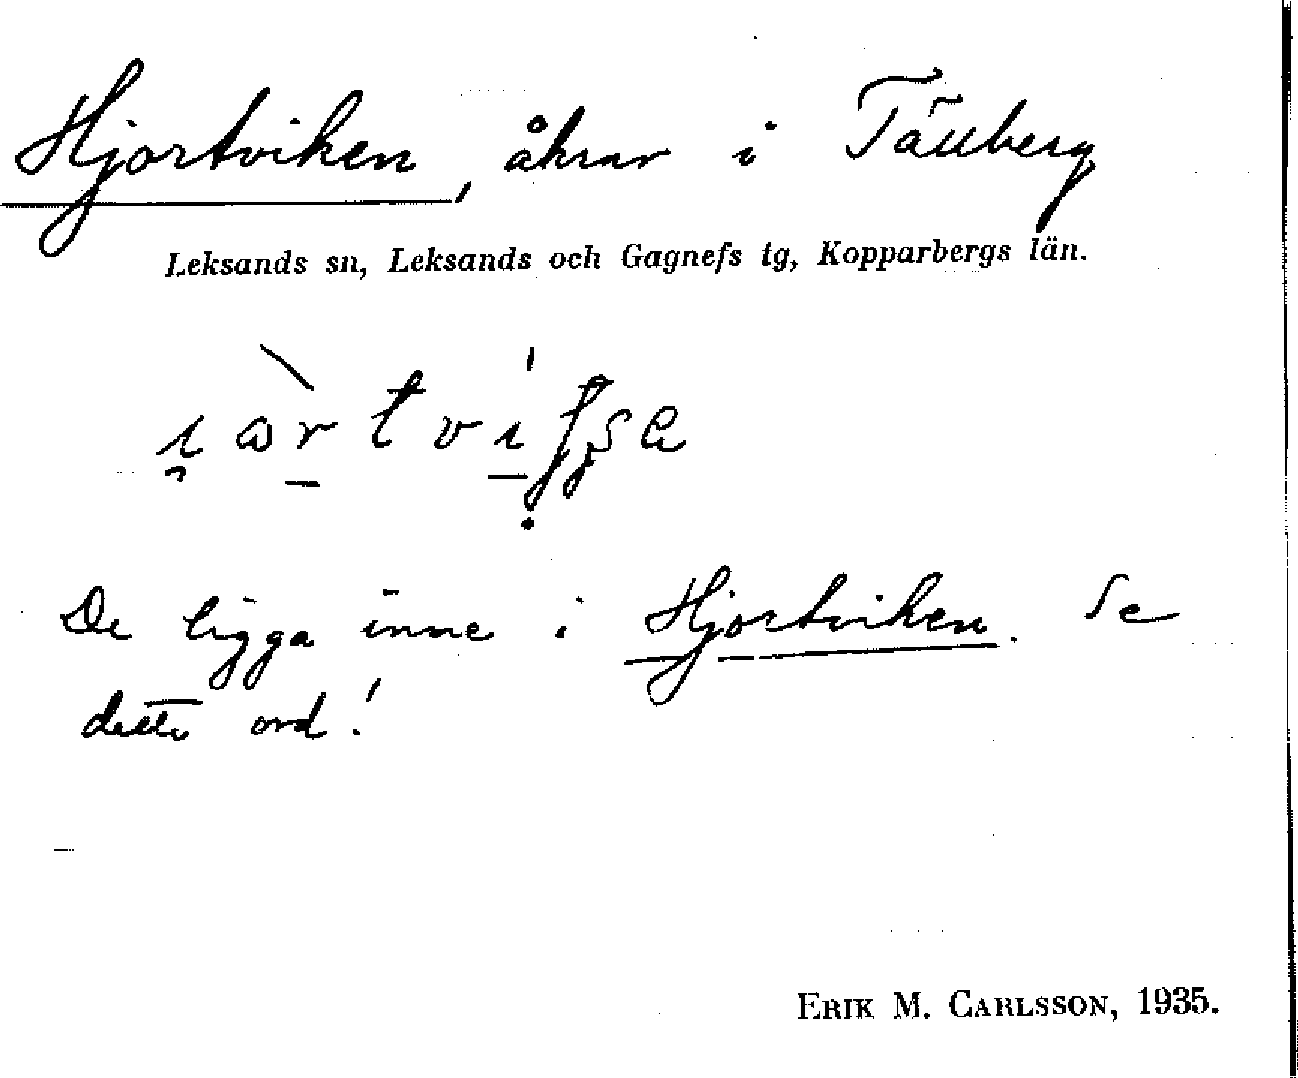 Hjortviken, åkrar i Tällberg
Leksands sn, Leksands och Gagnefs tg, Kopparbergs län.
De ligga inne i Hjortviken. Se
detta ord!
ERIK M. CARLSSON, 1935.